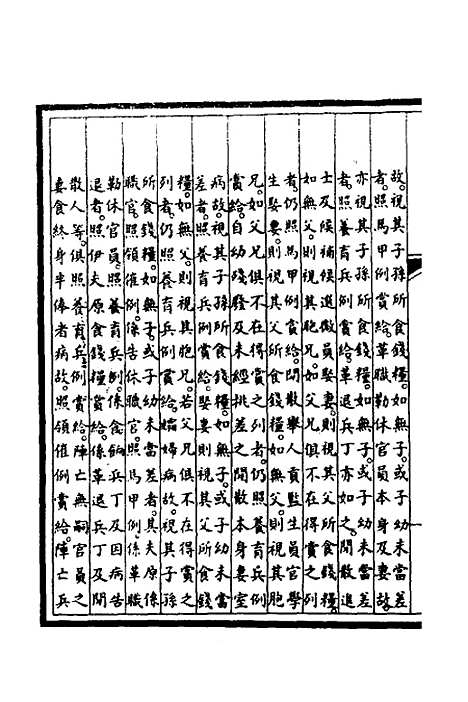 故。視其子孫所食錢糧。如無子。或子幼未當差
者。照馬甲例賞給。革職勒休官員本身及妻故。
亦視其子孫所食錢糧。如無子。或子幼未當差
者。照養育兵例賞給。革退兵丁亦如之。閒散進
士及候補候選微員娶妻。則視其父所食錢糧。
如無父。則視其胞兄。如父兄俱不在得賞之列
者。仍照馬甲例賞給。閒散舉人貢監生員官學
生娶妻。則視其父所食錢糧。如無父。則視其胞
兄。如父兄俱不在得賞之列者。仍照養育兵例
賞給。自幼殘廢及未經挑差之閒散本身妻室
病故。視其子孫所食錢糧。如無子。或子幼未當
差者。照養育兵例賞給。娶妻則視其父所食錢
糧。如無父。則視其胞兄。若父兄俱不在得賞之
列者。仍照養育兵例賞給。孀婦病故。視其子孫
所食錢糧。如無子。或子幼未當差者。其夫原係
職官。照領催例。係告休職官。照馬甲例。係革職
勒休官員。照養育兵例。係食餉兵丁及因病告
退者。照伊夫原食錢糧賞給。係革退兵丁及閒
散人等。俱照養育兵例賞給。陣亡無嗣官員之
妻食終身半俸者病故。照領催例賞給。陣亡兵